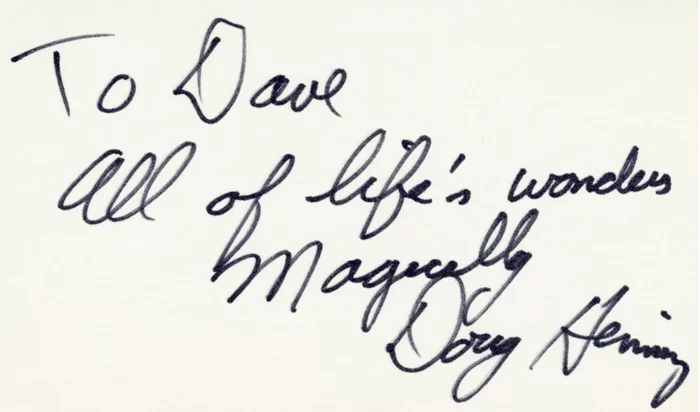 To Dave
All of life's wonders
Magically
Doug Henning